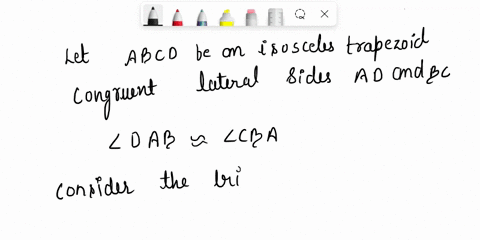 Let ABCD be an isosceles trapezoid
Congruent lateral sides AD and BC
∠DAB ≈ ∠CBA
Consider the tri